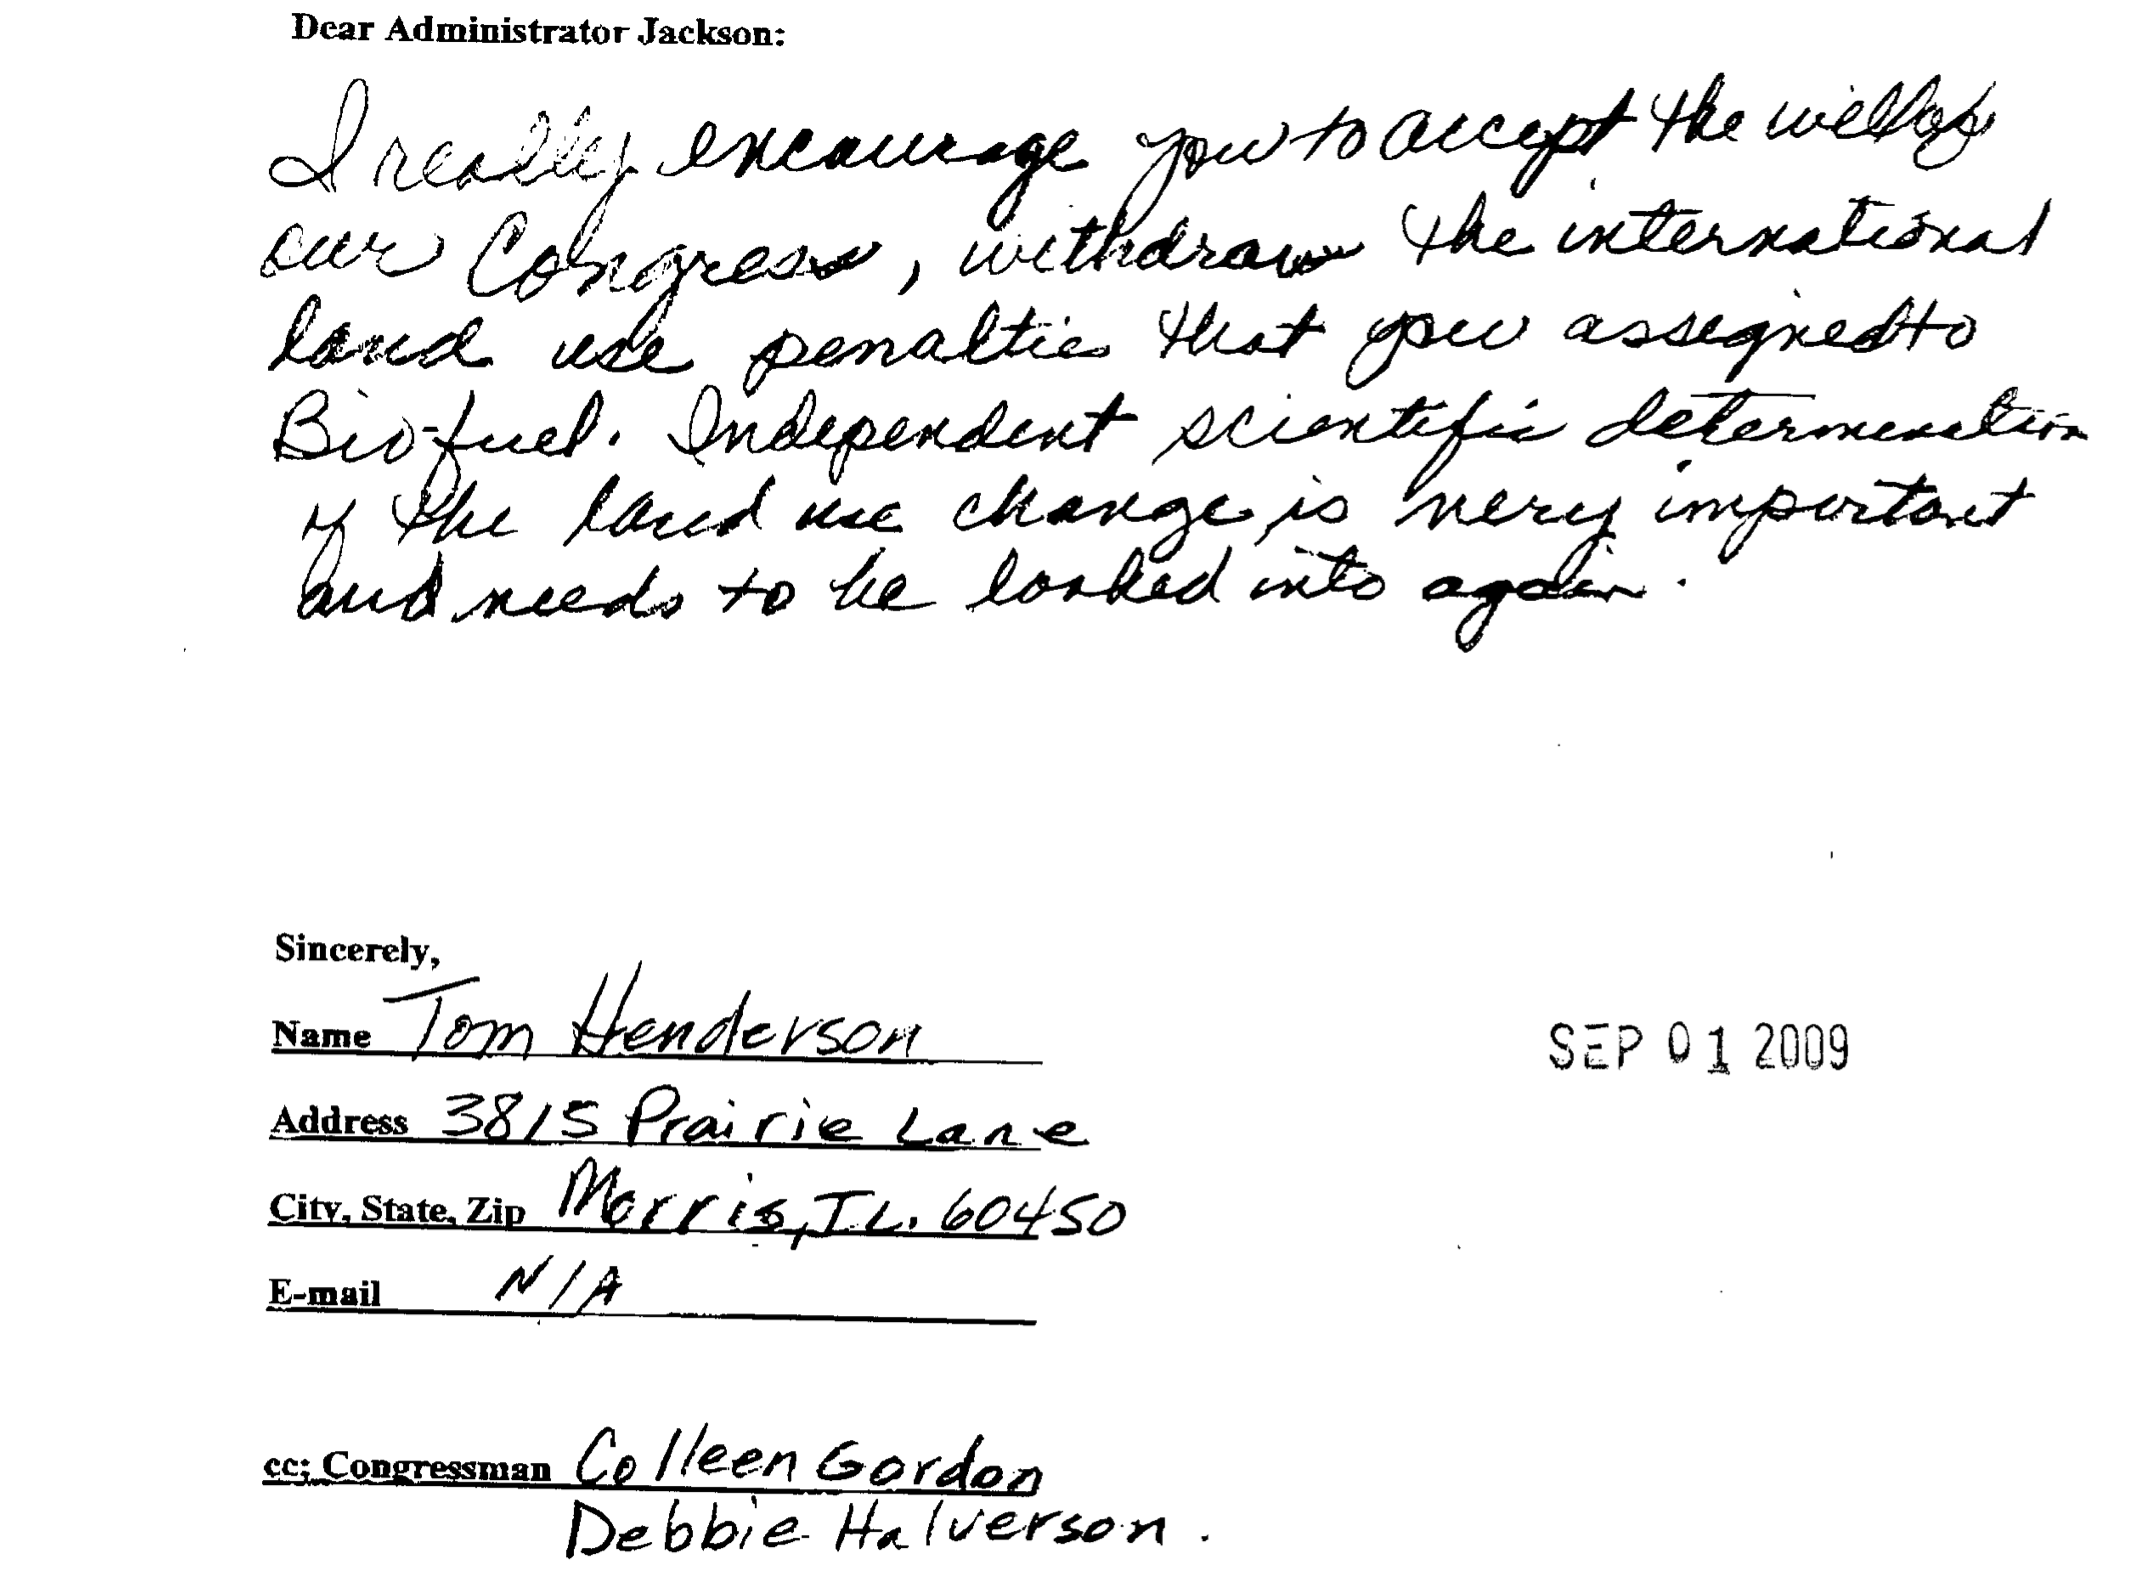 Dear Administrator Jackson:
I really encourage you to accept the will of
our Congress, withdraw the international
land use penalties that you assigned to
Bio-fuel. Independent scientific determination
of the land use change is very important
and needs to be looked into again.
Sincerely,
Name Tom Henderson
SEP 01 2009
Address 3815 Prairie Lane
City, State, Zip Morris, IL. 60450
E-mail N/A
cc: Congressman Colleen Gordon
Debbie Halverson.